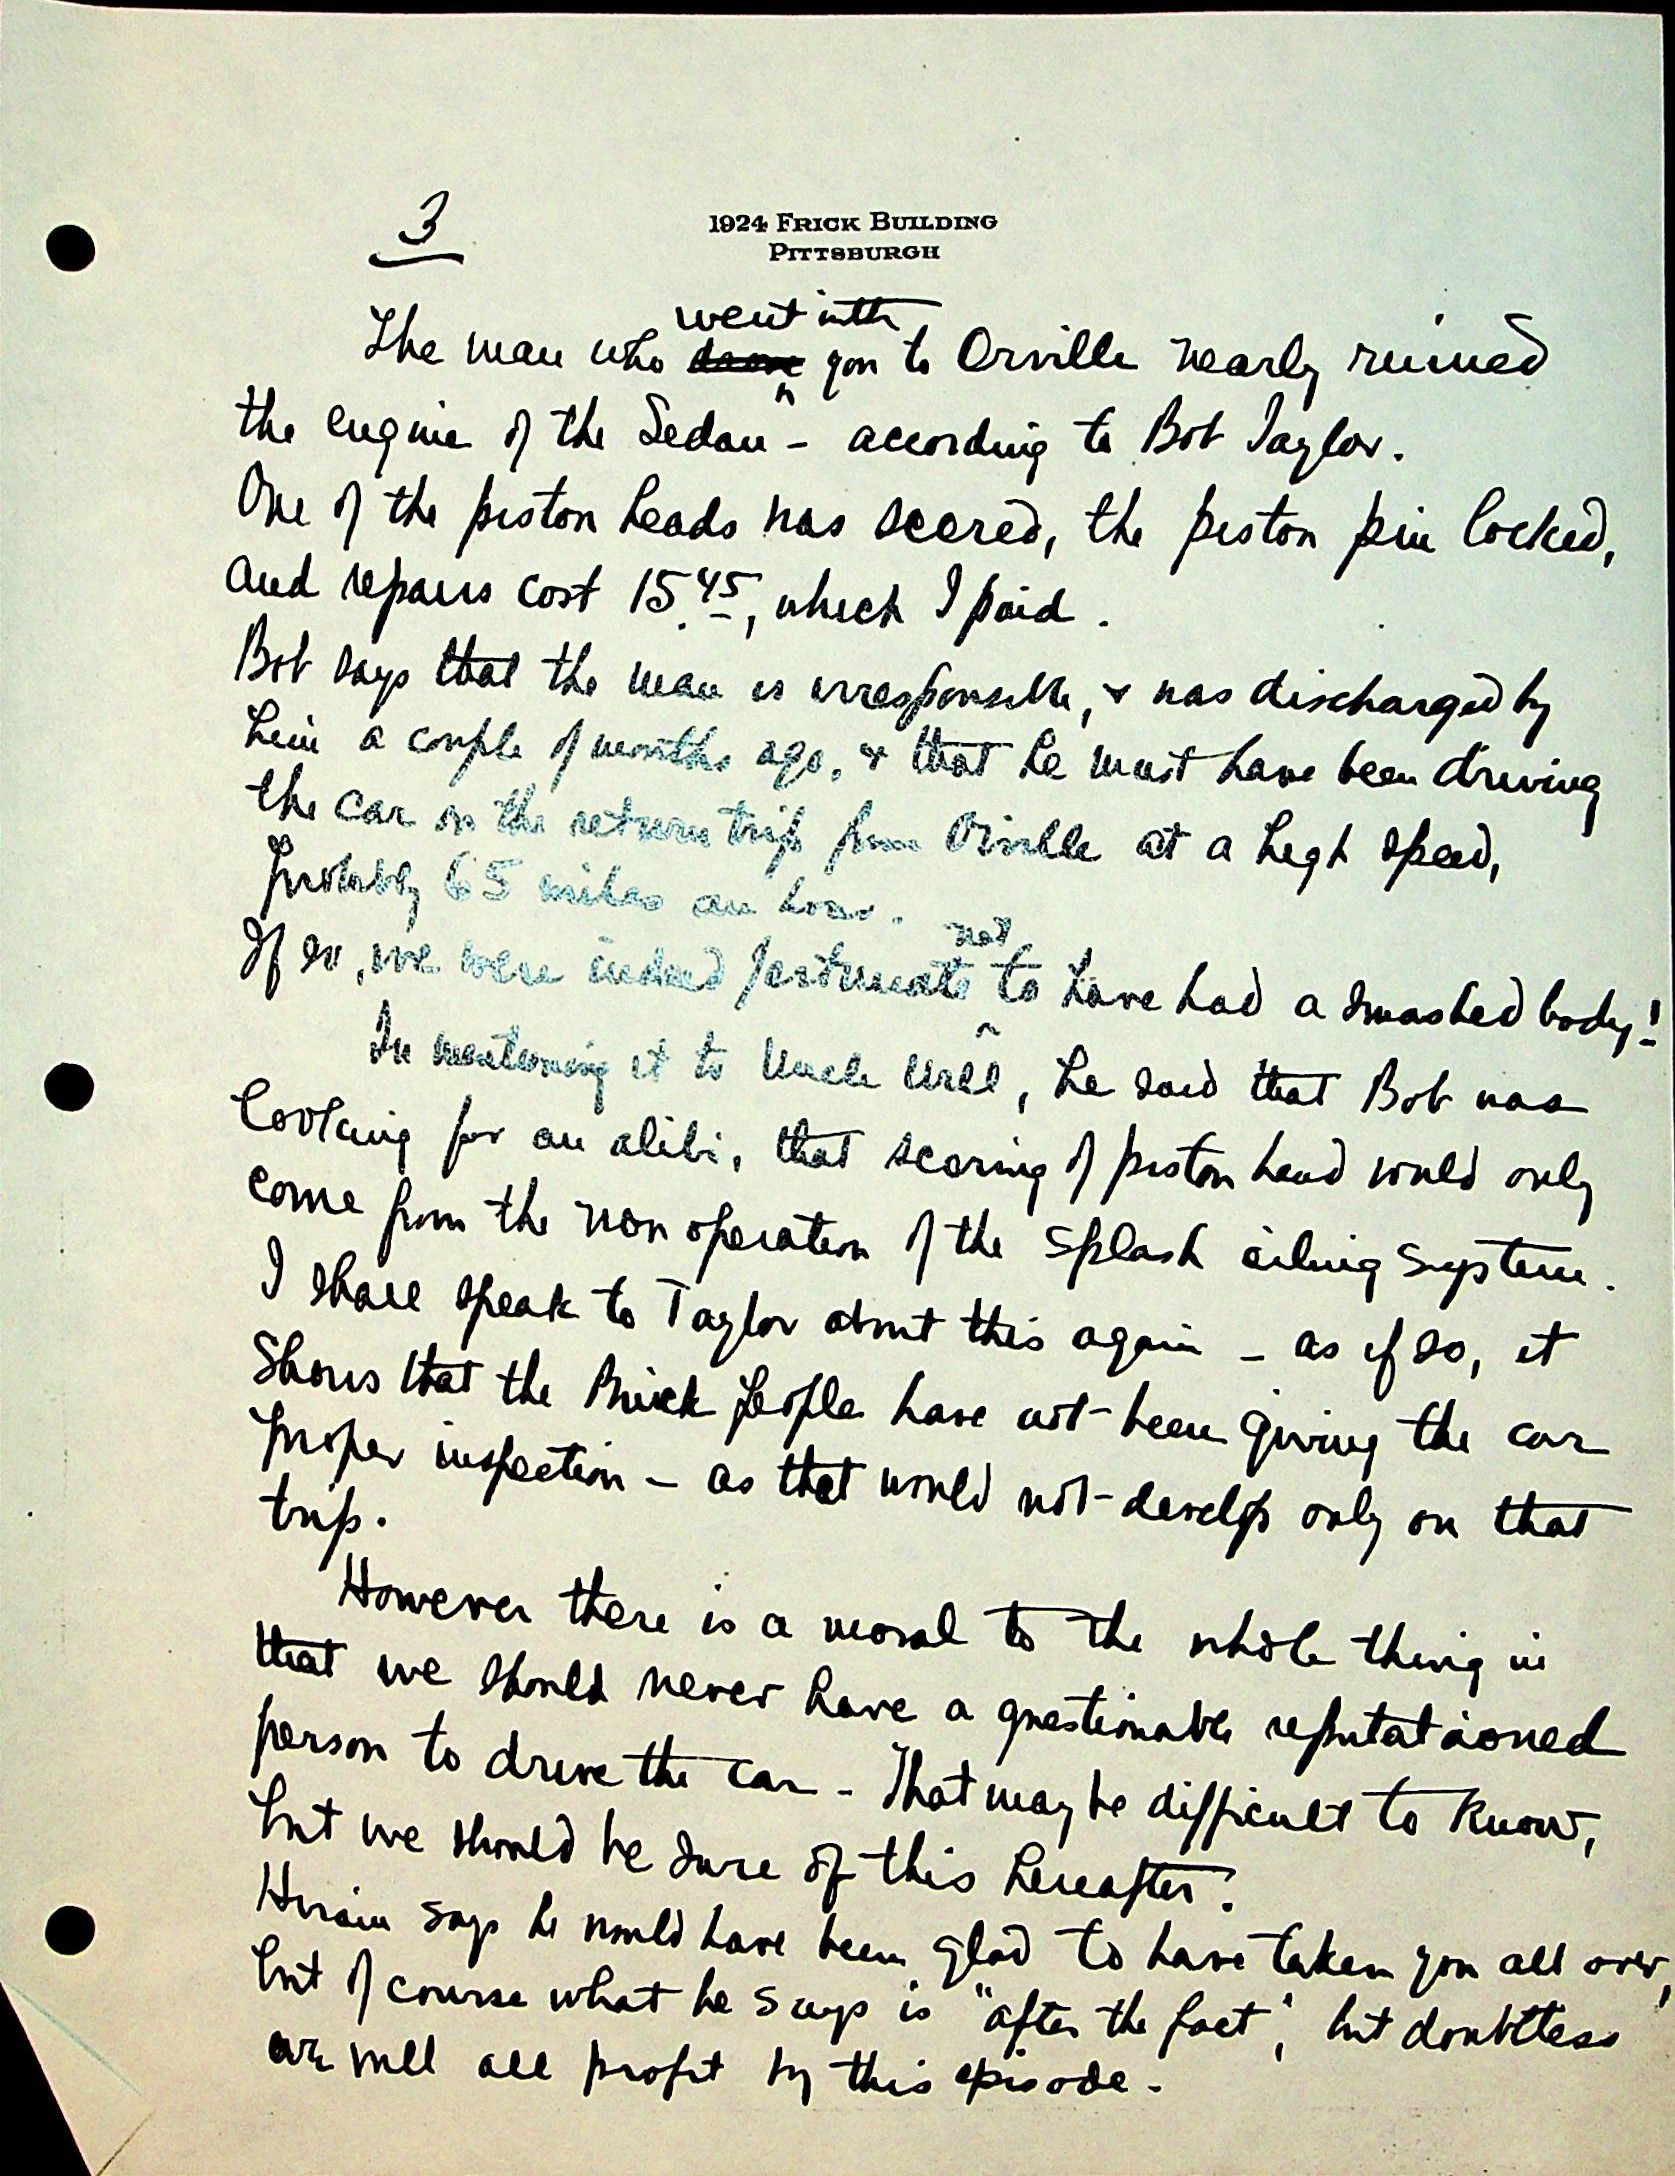 3
1924 FRICK BUILDING
PITTSBURGH
went with
The man who drove you to Orville nearly ruined
the engine of the Sedan - according to Bob Taylor.
One of the piston heads was scored, the piston pin locked,
and repairs cost 15.45, which I paid.
Bob says that the man is irresponsible, & was discharged by
him a couple of months ago, & that he must have been driving
the car on the return trip from Orville at a high speed,
probably 65 miles an hour.
not
If so, we were indeed fortunate to have had a smashed body!
In mentioning it to Uncle Will, he said that Bob was
looking for an alibi, that scoring of piston head would only
come from the non operation of the splash oiling system.
I shall speak to Taylor about this again - as if so, it
shows that the Buick people have not been giving the car
proper inspection - as that would not develop only on that
trip.
However there is a moral to the whole thing in
that we should never have a questionable reputationed
person to drive the car - That may be difficult to know,
but we should be sure of this hereafter.
Hiram says he would have been glad to have taken you all over,
but of course what he says is "after the fact", but doubtless
we will all profit by this episode.